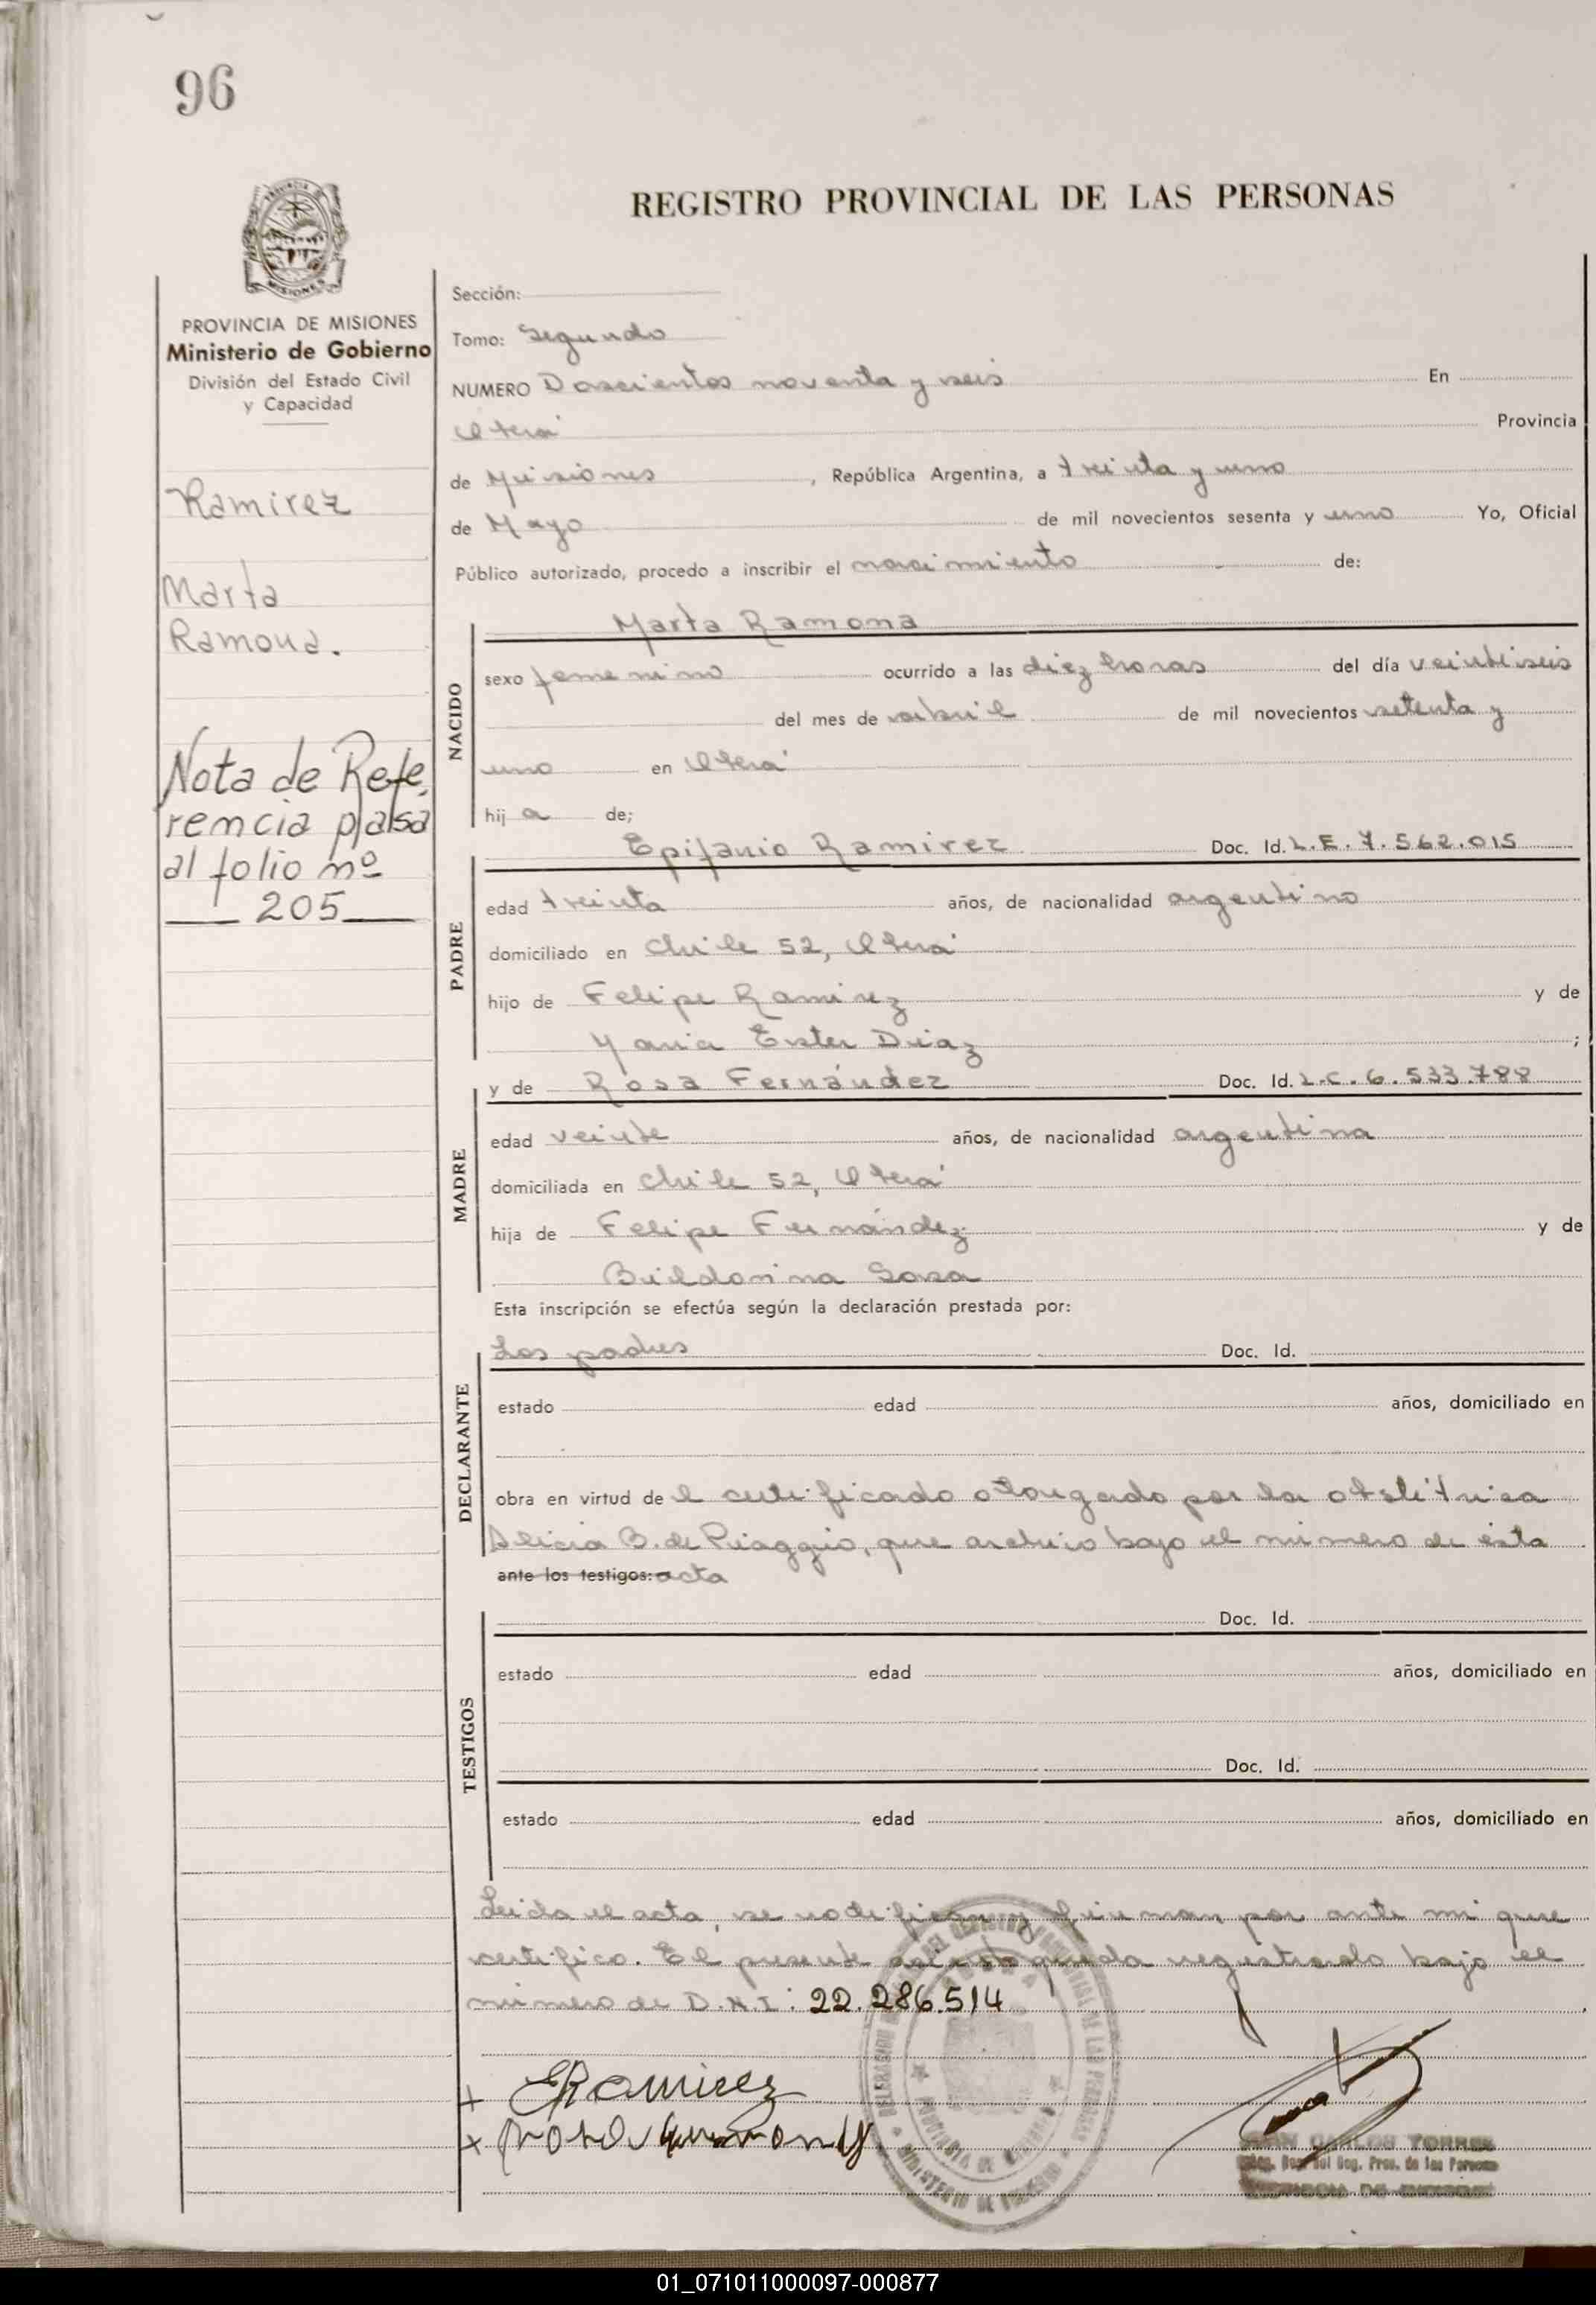 96
REGISTRO PROVINCIAL DE LAS PERSONAS
MISIONES
PROVINCIA DE MISIONES
Ministerio de Gobierno
División del Estado Civil
y Capacidad
Ramirez
Marta
Ramona.
Nota de Refe,
rencia pasa
al folio nº
205
Sección:
Tomo: Segundo
NUMERO Doscientos noventa y seis En
Oberá Provincia
de Misiones , República Argentina, a treinta y uno
de Mayo de mil novecientos sesenta y uno Yo, Oficial
Público autorizado, procedo a inscribir el nacimiento de:
NACIDO
Marta Ramona
sexo femenino ocurrido a las diez horas del día veintiseis
del mes de abril de mil novecientos setenta y
uno en Oberá
hij a de;
PADRE
Epifanio Ramirez Doc. Id. L.E. 7.562.015
edad treinta años, de nacionalidad argentino
domiciliado en Chile 52, Oberá
hijo de Felipe Ramirez y de
Maria Ester Diaz ;
MADRE
y de Rosa Fernández Doc. Id. L.C. 6.533.788
edad veinte años, de nacionalidad argentina
domiciliada en Chile 52, Oberá
hija de Felipe Fernández y de
Buildorina Sosa
Esta inscripción se efectúa según la declaración prestada por:
DECLARANTE
Los padres Doc. Id.
estado edad años, domiciliado en
obra en virtud de l certificado otorgado por la obstétrica
Alicia B. de Piaggio, que archivo bajo el número de ésta
ante los testigos: acta
TESTIGOS
Doc. Id.
estado edad años, domiciliado en
Doc. Id.
estado edad años, domiciliado en
Leida el acta, se notifican y firman por ante mi que
certifico. El presente acta queda registrado bajo el
número de D.N.I: 22.286.514
x ERamirez
x
JUAN CARLOS TORRES
Reg. Prov. de las Personas
01_071011000097-000877